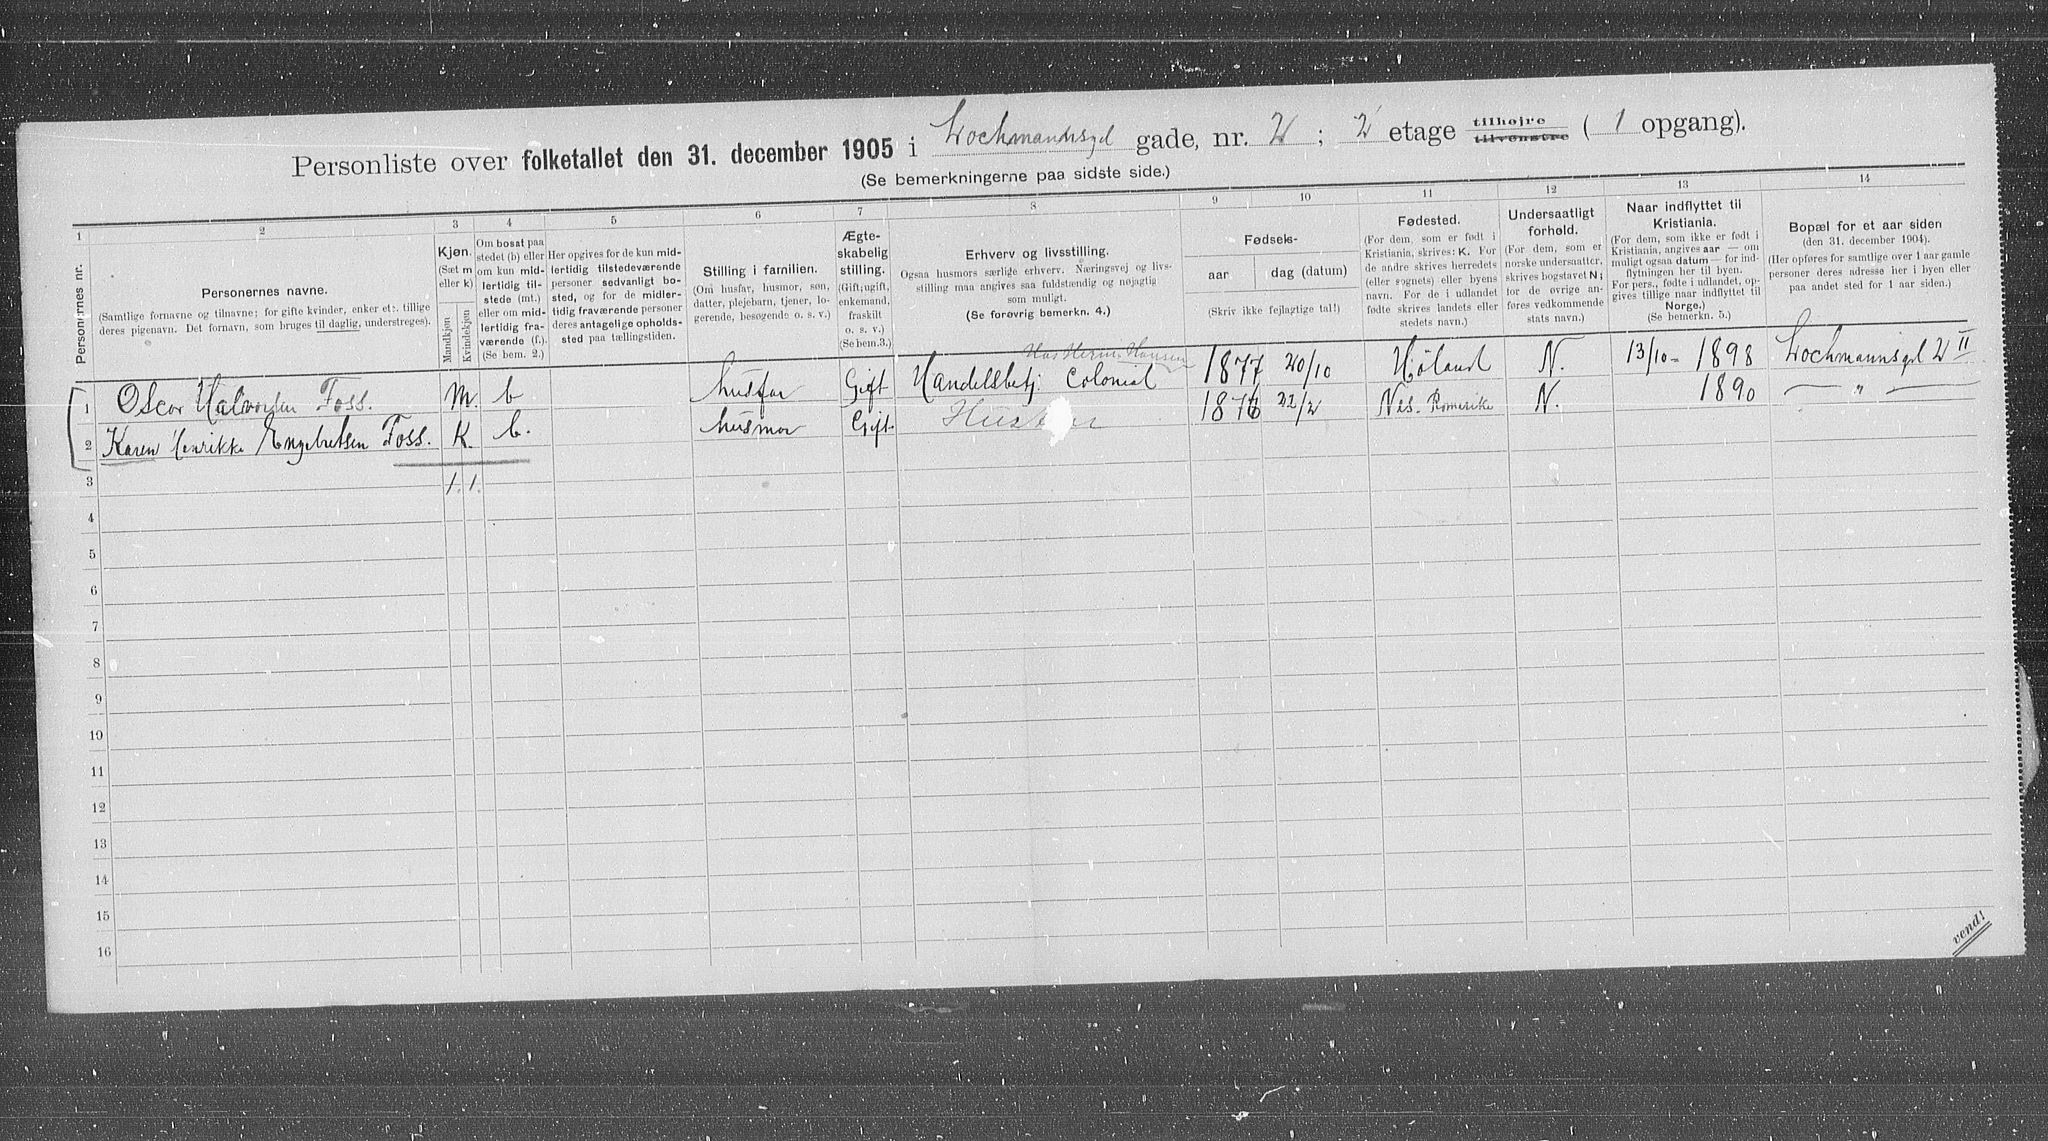 Personliste over folketallet den 31. december 1905 i Lochmandsgd gade, nr. 2 ; 2 etage tilhøjre tilvenstre ( 1 opgang).
(Se bemerkningerne paa sidste side.)
1 2 3 4 5 6 7 8 9 10 11 12 13 14
Personernes nr.
Personernes navne.
(Samtlige fornavne og tilnavne; for gifte kvinder, enker etc. tillige
deres pigenavn. Det fornavn, som bruges til daglig, understreges).
Kjøn.
(Sæt m
eller k)
Mandkjøn
Kvindekjøn
Om bosat paa
stedet (b) eller
om kun mid-
lertidig til-
stede (mt.)
eller om mid-
lertidig fra-
værende (f.).
(Se bem. 2.)
Her opgives for de kun mid-
lertidig tilstedeværende
personer sedvanligt bo-
sted, og for de midler-
tidig fraværende personer
deres antagelige opholds-
sted paa tællingstiden.
Stilling i familien.
(Om husfar, husmor, søn,
datter, plejebarn, tjener, lo-
gerende, besøgende o. s. v.)
Ægte-
skabelig
stilling.
(Gift; ugift,
enkemand,
fraskilt
o. s. v.)
(Se bem.3.)
Erhverv og livsstilling.
Ogsaa husmors særlige erhverv. Næringsvej og livs-
stilling maa angives saa fuldstændig og nøjagtig
som muligt.
(Se forøvrig bemerkn. 4.)
Fødsels-
aar
dag (datum)
(Skriv ikke fejlagtige tal!)
Fødested.
(For dem, som er født i
Kristiania, skrives: K. For
de andre skrives herredets
(eller sognets) eller byens
navn. For de i udlandet
fødte skrives landets eller
stedets navn.)
Undersaatligt
forhold.
(For dem, som er
norske undersaatter,
skrives bogstavet N;
for de øvrige an-
føres vedkommende
stats navn.)
Naar indflyttet til
Kristiania.
(For dem, som ikke er født i
Kristiania, angives aar — om
muligt ogsaa datum — for ind-
flytningen her til byen.
For pers., fødte i udlandet, op-
gives tillige naar indflyttet til
Norge.)
(Se bemerkn. 5.)
Bopæl for et aar siden
(den 31. december 1904).
(Her opføres for samtlige over 1 aar gamle
personer deres adresse her i byen eller
paa andet sted for 1 aar siden.)
Hos Herm. Hansen
1 Oscar Halvorsen Foss. M. b husfar Gift Handelsbetj. Colonial 1877 20/10 Høland N. 13/10 - 1898 Lochmannsgd 2 II
2 Karen Henrikke Engebretsen Foss. K. b. husmor Gift 1876 22/2 Nes. Romerike N. 1890 — " —
3 1. 1.
4
5
6
7
8
9
10
11
12
13
14
15
16
vend!